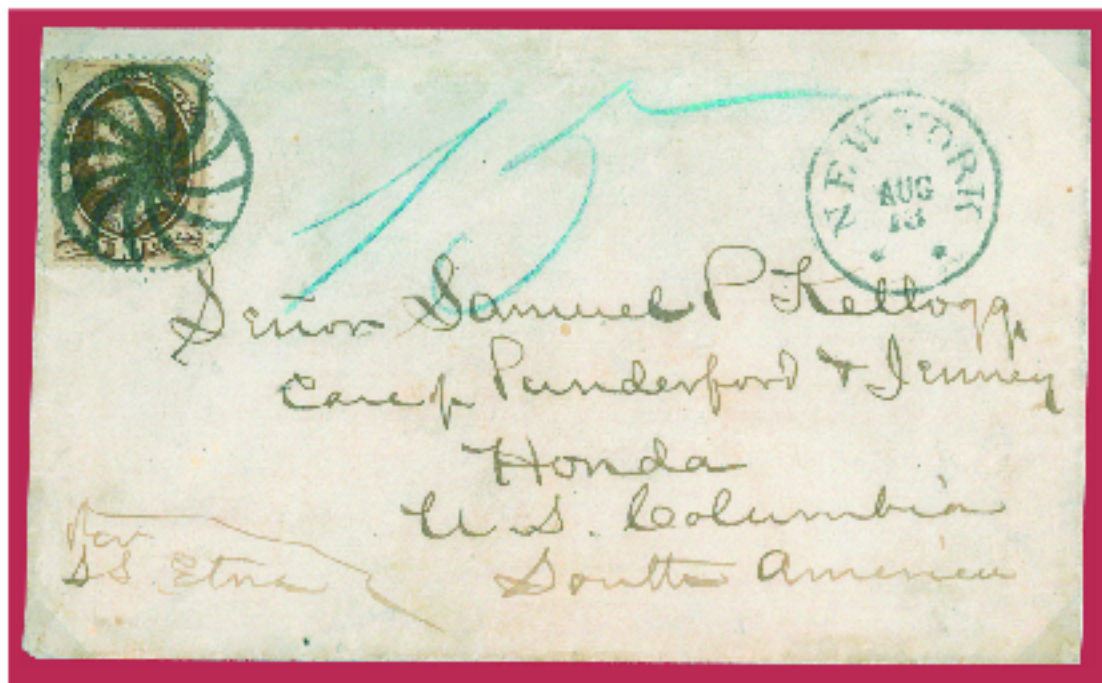 15
NEW YORK
AUG
13
Señor Samuel P Kellogg,
Care of Punderford & Jenney
Honda
U. S. Columbia
South America
per
SS. Etna